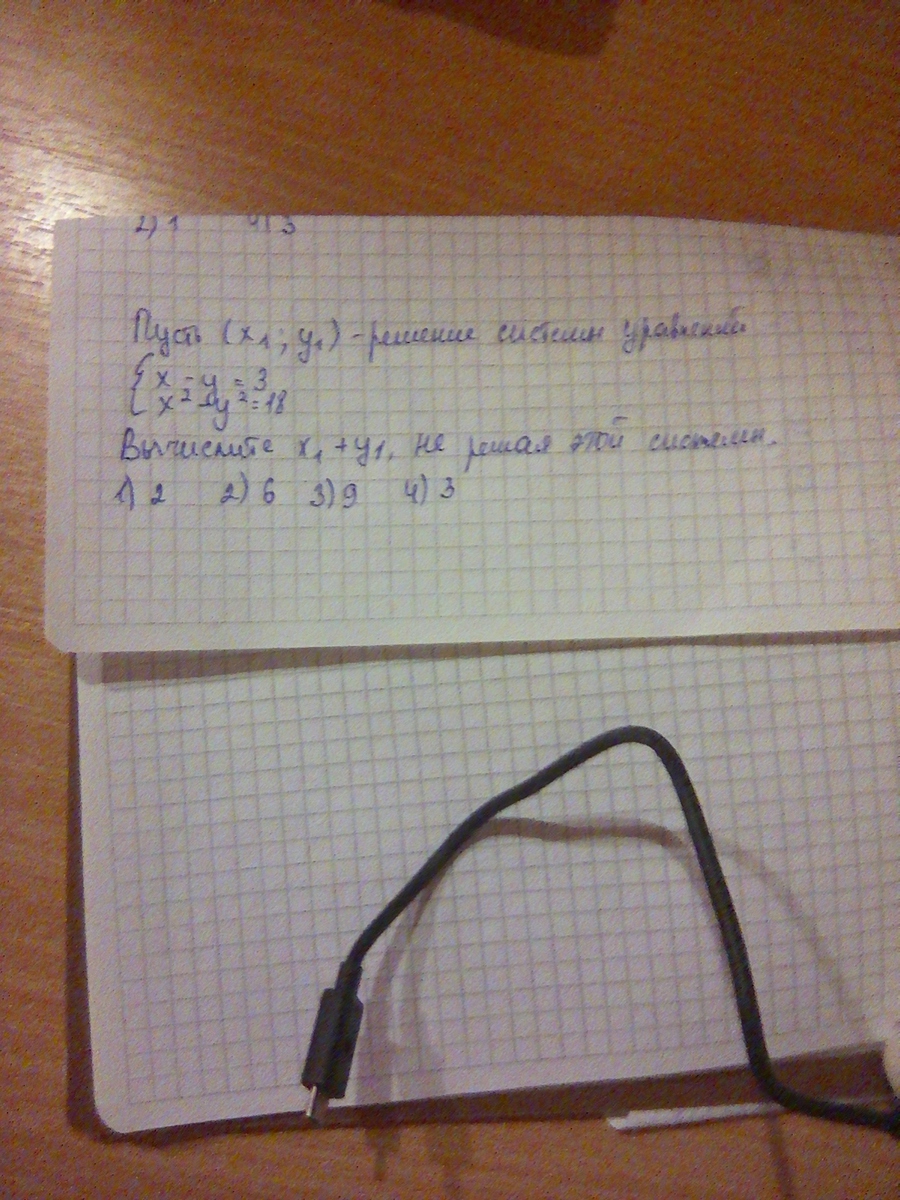 2) 1 4) 3
Пусть (x₁; y₁) - решение системы уравнений
{ x - y = 3
x² - y² = 18
Вычислите x₁ + y₁, не решая этой системы.
1) 2 2) 6 3) 9 4) 3